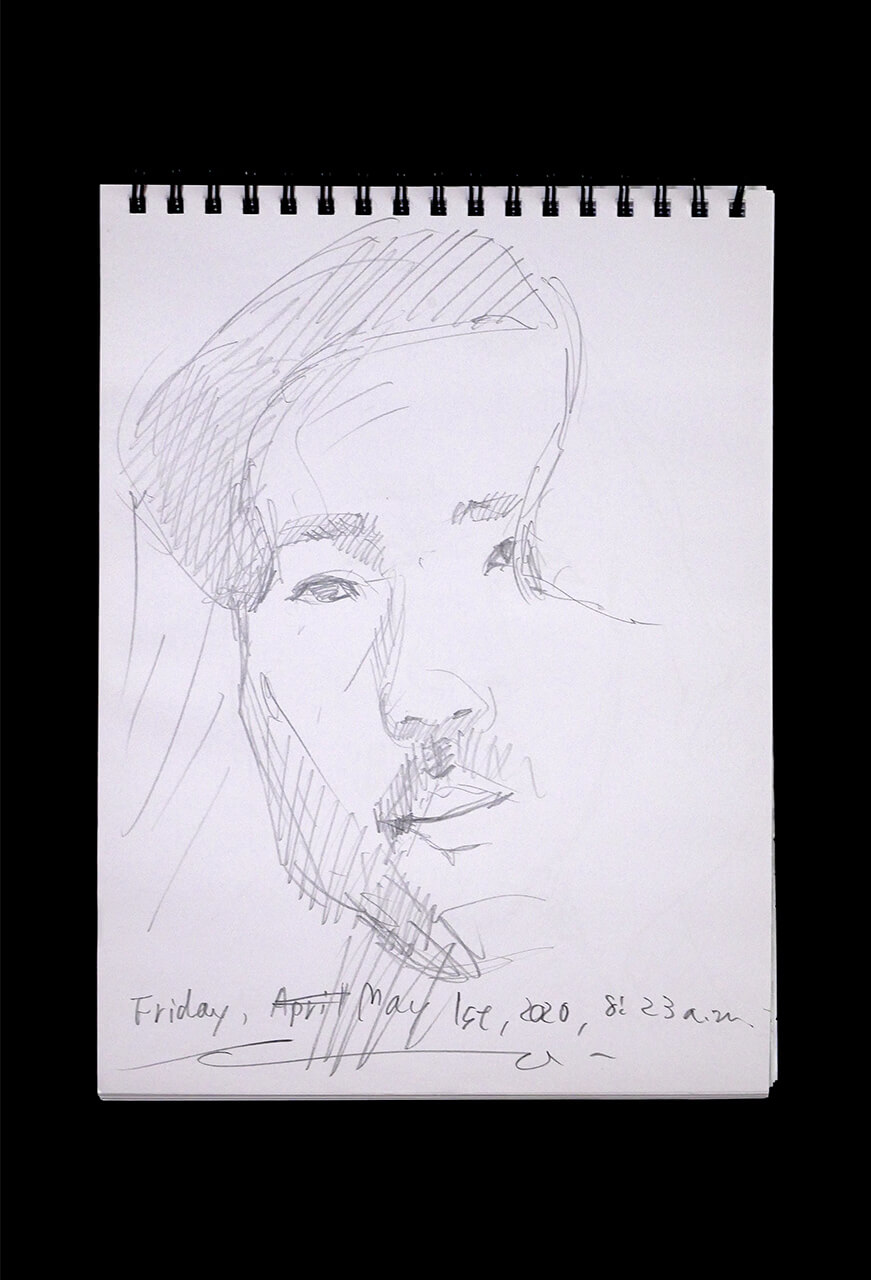 Friday, April May 1st, 2020, 8:23 a.m.